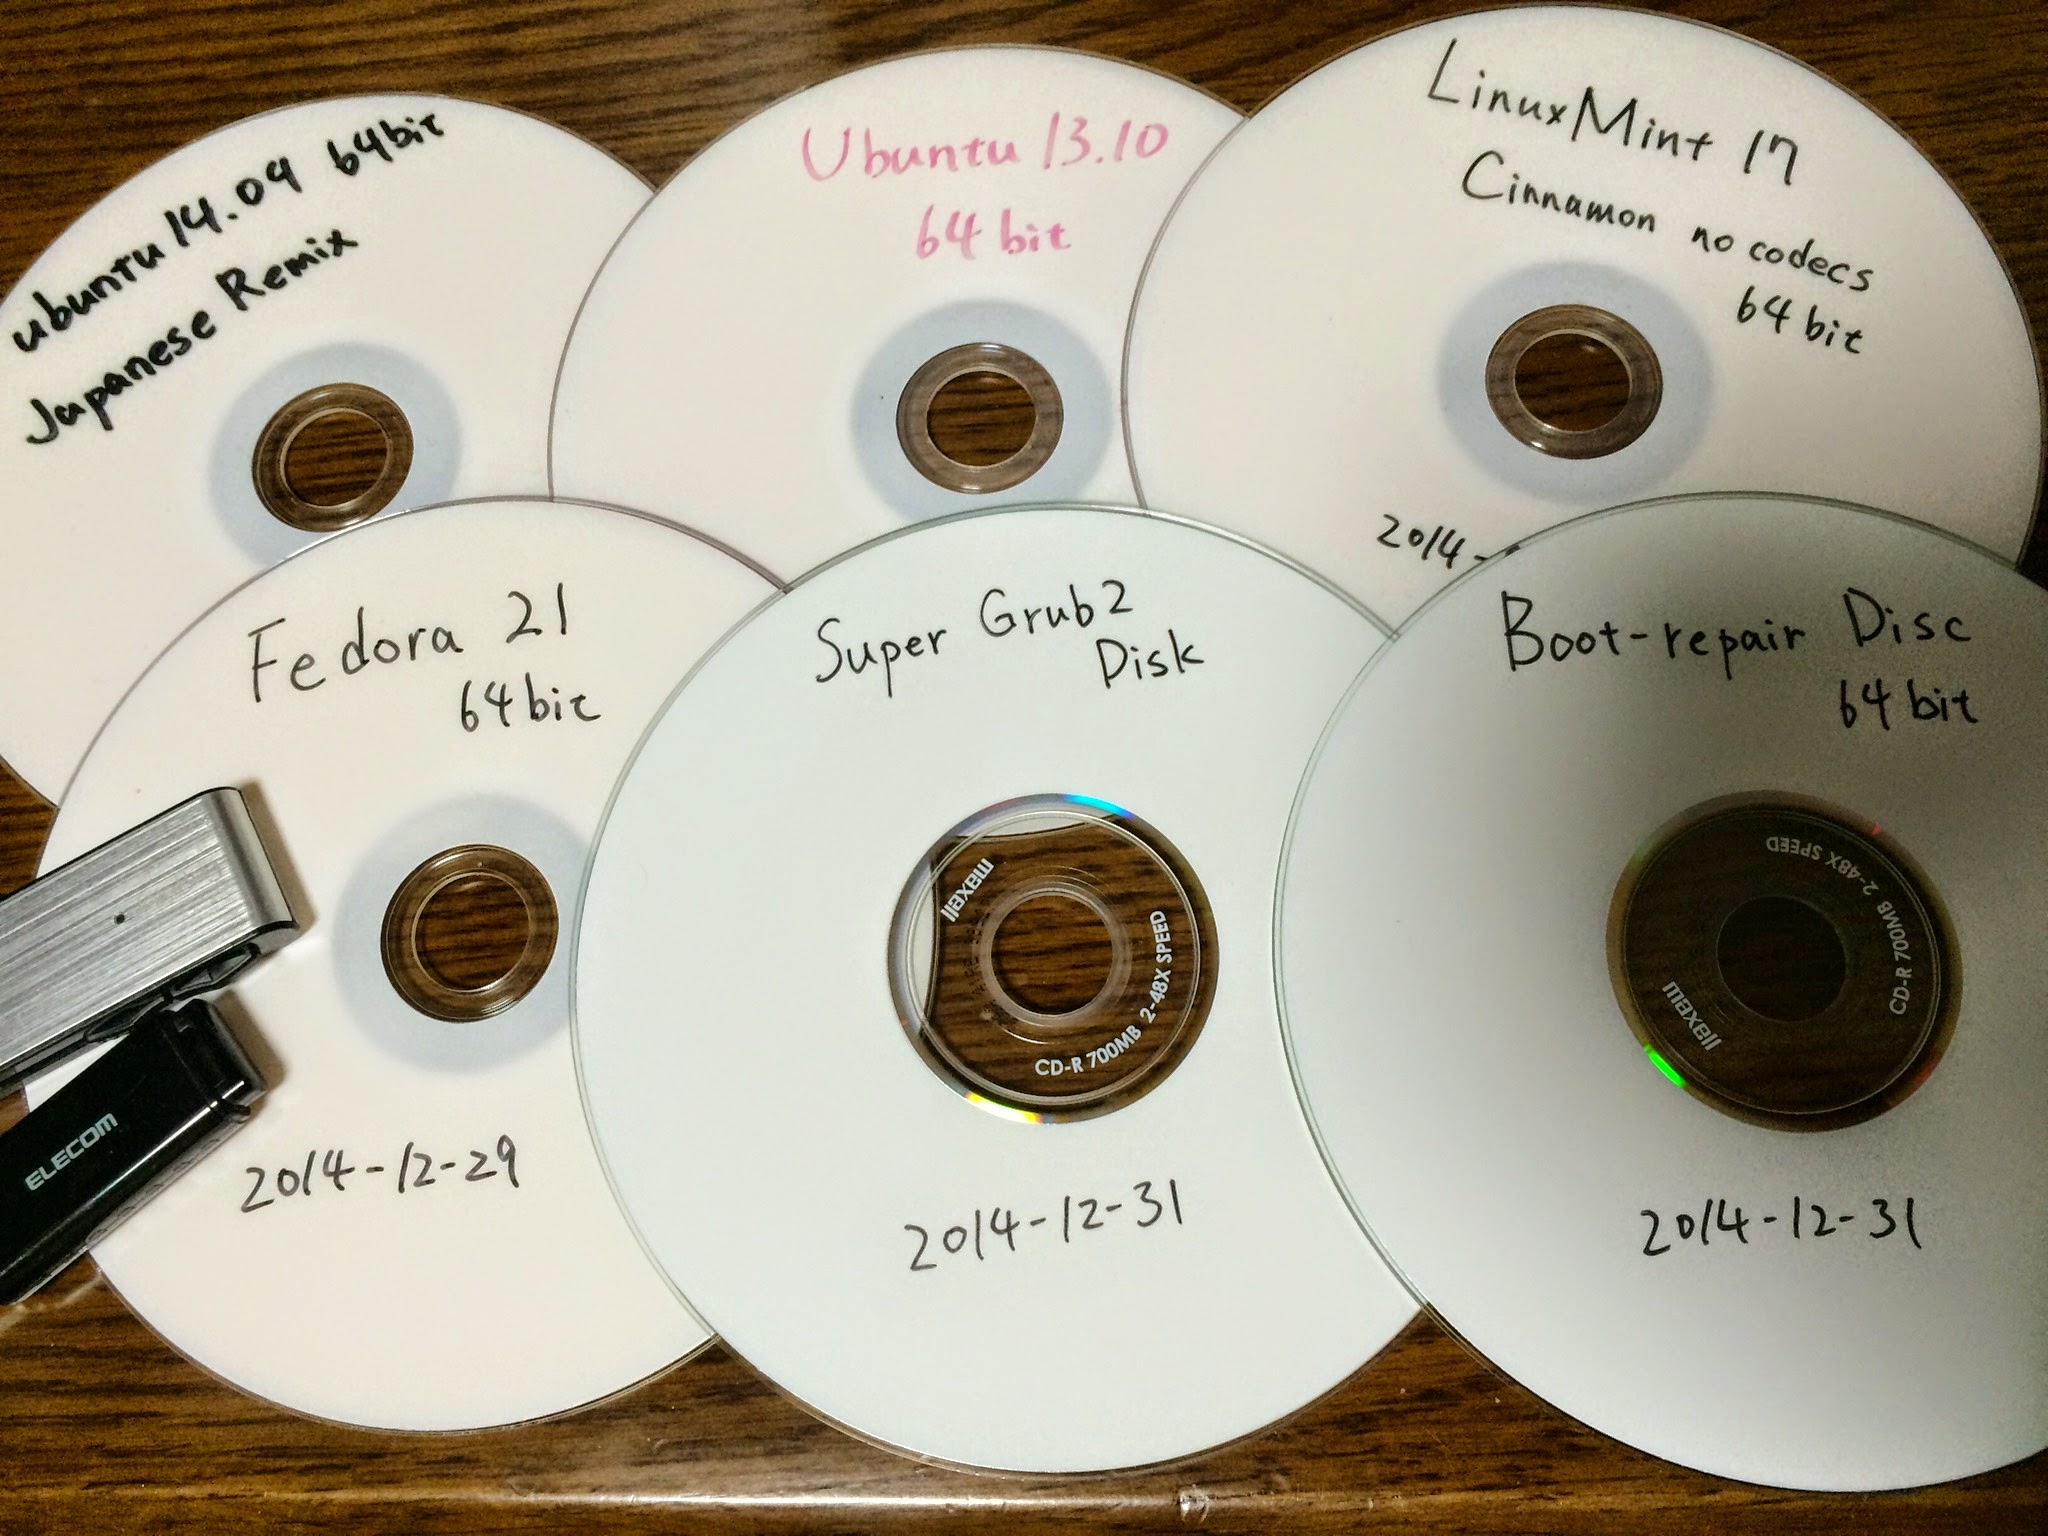 ubuntu 14.04 64bit
Japanese Remix
Ubuntu 13.10
64 bit
LinuxMint 17
Cinnamon no codecs
64 bit
2014-
Fedora 21
64bit
2014-12-29
Super Grub2
Disk
maxell
CD-R 700MB 2-48X SPEED
2014-12-31
Boot-repair Disc
64 bit
maxell
CD-R 700MB 2-48X SPEED
2014-12-31
ELECOM